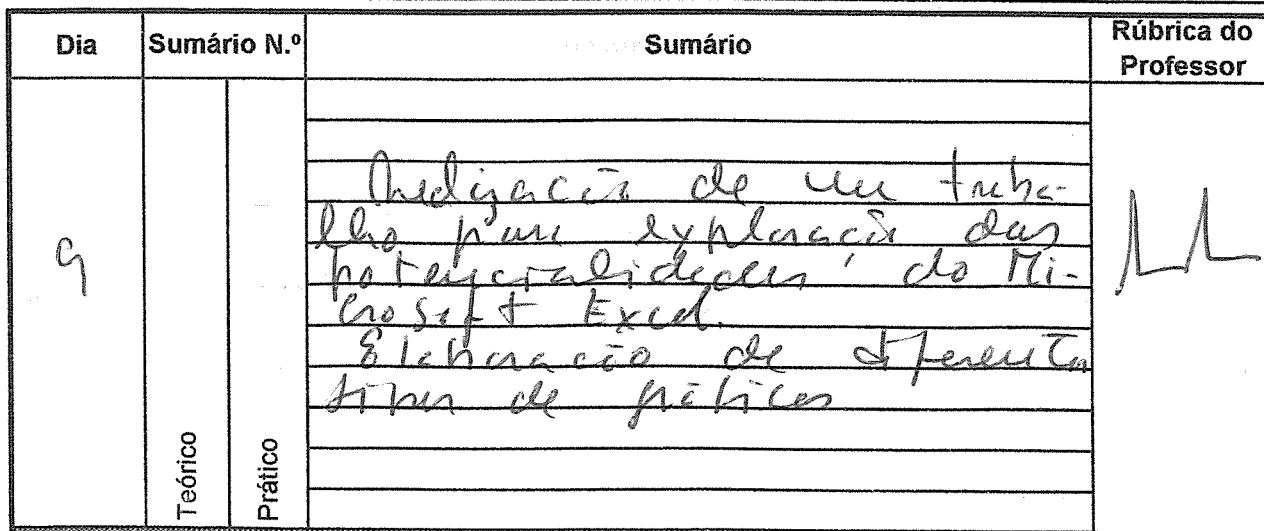 Dia
Sumário N.º
Sumário
Rúbrica do
Professor
9
Realização de um traba-
lho para exploração das
potencialidades do Mi-
crosoft Excel.
Elaboração de diferentes
tipos de gráficos
Teórico
Prático